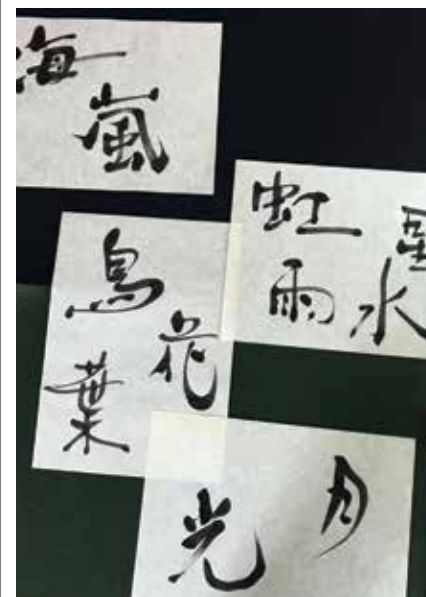 海
嵐
虹
雨
星
水
鳥
花
葉
月
光